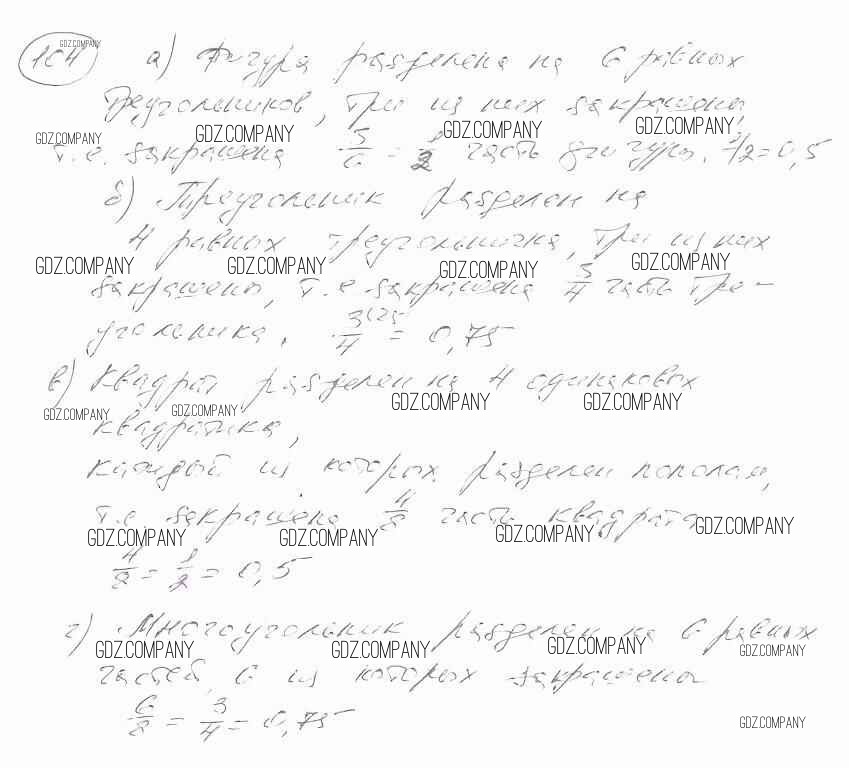 104 GDZ.COMPANY а) Фигура разделена на 6 равных
треугольников, три из них закрашены,
GDZ.COMPANY GDZ.COMPANY GDZ.COMPANY GDZ.COMPANY
т.е. закрашена 3/6 = 1/2 часть фигуры. 1/2 = 0,5
б) Треугольник разделен на
4 равных треугольничка, три из них
GDZ.COMPANY GDZ.COMPANY GDZ.COMPANY GDZ.COMPANY
закрашены, т.е закрашена 3/4 часть тре-
угольника. 3(25/4 = 0,75
в) Квадрат разделен на 4 одинаковых
GDZ.COMPANY GDZ.COMPANY GDZ.COMPANY GDZ.COMPANY
квадратика,
каждый из которых разделен пополам,
т.е. закрашена 4/8 часть квадрата
GDZ.COMPANY GDZ.COMPANY GDZ.COMPANY GDZ.COMPANY
4/8 = 1/2 = 0,5
г) Многоугольник разделен на 6 равных
GDZ.COMPANY GDZ.COMPANY GDZ.COMPANY GDZ.COMPANY
частей, 6 из которых закрашены
6/8 = 3/4 = 0,75
GDZ.COMPANY